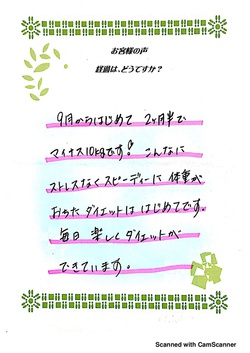 お客様の声
経過は、どうですか?
9月からはじめて 2ヶ月半で
マイナス10kgです! こんなに
ストレスなくスピーディーに 体重が
おちたダイエットは はじめてです。
毎日 楽しくダイエットが
できています。
Scanned with CamScanner